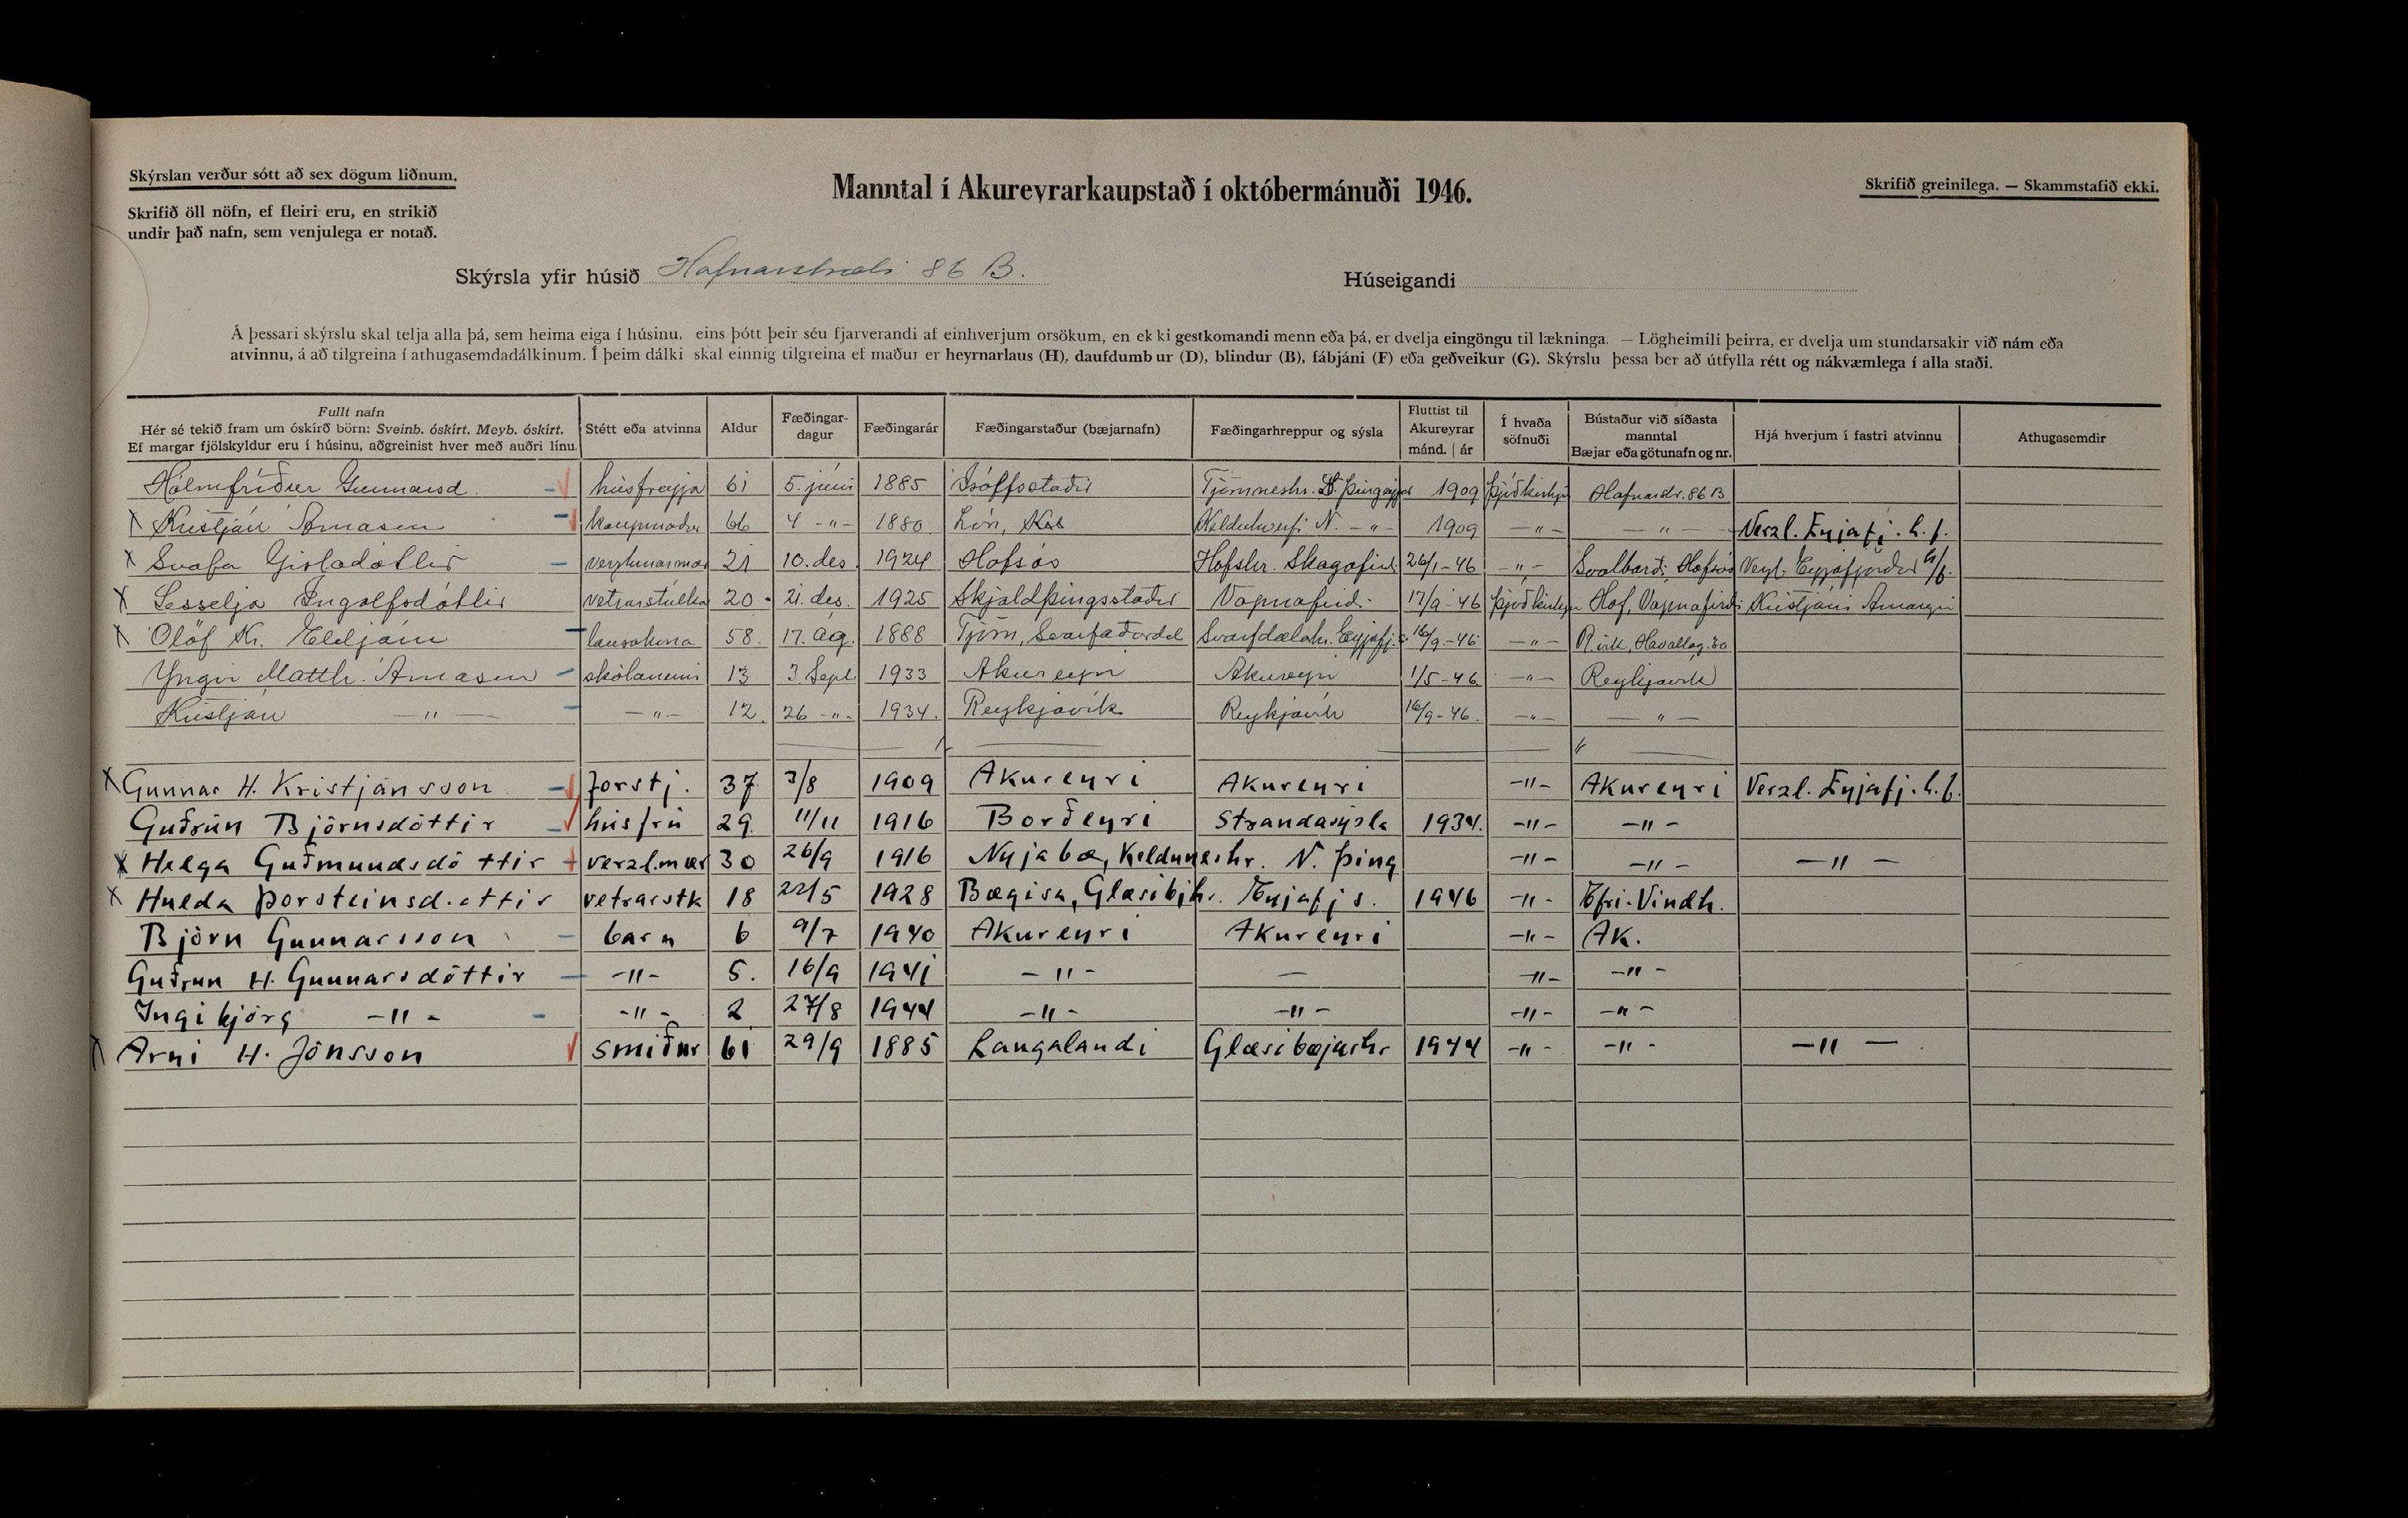 Skýrslan verður sótt að sex dögum liðnum.
Skrifið öll nöfn, ef fleiri eru, en strikið
undir það nafn, sem venjulega er notað.
Manntal í Akureyrarkaupstað í októbermánuði 1946.
Skrifið greinilega. — Skammstafið ekki.
Skýrsla yfir húsið Hafnarstræti 86 B. Húseigandi
Á þessari skýrslu skal telja alla þá, sem heima eiga í húsinu, eins þótt þeir séu fjarverandi af einhverjum orsökum, en ekki gestkomandi menn eða þá, er dvelja eingöngu til lækninga. — Lögheimili þeirra, er dvelja um stundarsakir við nám eða
atvinnu, á að tilgreina í athugasemdadálkinum. Í þeim dálki skal einnig tilgreina ef maður er heyrnarlaus (H), daufdumbur (D), blindur (B), fábjáni (F) eða geðveikur (G). Skýrslu þessa ber að útfylla rétt og nákvæmlega í alla staði.
Fullt nafn
Hér sé tekið fram um óskírð börn: Sveinb. óskírt. Meyb. óskírt.
Ef margar fjölskyldur eru í húsinu, aðgreinist hver með auðri línu.
Stétt eða atvinna
Aldur
Fæðingar-
dagur
Fæðingarár
Fæðingarstaður (bæjarnafn)
Fæðingarhreppur og sýsla
Fluttist til
Akureyrar
mánd. | ár
Í hvaða
söfnuði
Bústaður við síðasta
manntal
Bæjar eða götunafn og nr.
Hjá hverjum í fastri atvinnu
Athugasemdir
Hólmfríður Gunnarsd. húsfreyja 61 5. júní 1885 Tjörneshr. 1909 Þjóðkirkju Hafnarstr. 86 B
X Kristján Árnason kaupmaður 66 4 -"- 1880 Lón, Kelduhverfi N. -"- 1909 -"- -"- Verzl. Eyjafj. h.f.
X Svafa Gísladóttir verzlunarmær 21 10. des. 1924 Hofsós Hofshr. Skagafird. 26/1-46 -"- Svalbarð, Hofsós Verzl. Eyjafjörður h/f.
X Sesselja Ingólfsdóttir vetrarstúlka 20 21. des. 1925 Skjaldþingsstaðir Vopnafirði 17/9-46 Þjóðkirkju Hof, Vopnafirði Kristjáni Árnasyni
X Ólöf Kr. Eldjárn lausakona 58. 17. ág. 1888 Tjörn, Svarfaðardal Svarfdælahr. Eyjafj.s. 16/9-46 -"- R.vík, Hávallag. 30
Yngvi Matth. Árnason skólanemi 13 3. Sept. 1933 Akureyri Akureyri 1/5-46 -"- Reykjavík
Kristján -"- -"- 12. 26 -"- 1934. Reykjavík Reykjavík 16/9-46. -"- -"-
X Gunnar H. Kristjánsson forstj. 37 3/8 1909 Akureyri Akureyri -"- Akureyri Verzl. Eyjafj. h.f.
Guðrún Björnsdóttir húsfrú 29. 11/11 1916 Borðeyri Strandasýsla 1934. -"- -"-
X Helga Guðmundsdóttir verzl.mær 30 26/9 1916 Nýjabæ, Kelduneshr. N. Þing -"- -"- -"-
X Hulda Þorsteinsdottir vetrarstk 18 22/5 1928 Bægisá, Glæsibjhr. Eyjafj s. 1946 -"- Efri-Vindh.
Björn Gunnarsson barn 6 9/7 1940 Akureyri Akureyri -"- Ak.
Guðrun H. Gunnarsdóttir -"- 5. 16/9 1941 -"- — -"- -"-
Ingibjörg -"- -"- 2 27/8 1944 -"- -"- -"- -"-
X Arni H. Jónsson smiður 61 29/9 1885 Langalandi Glæsibæjarhr 1944 -"- -"- -"-